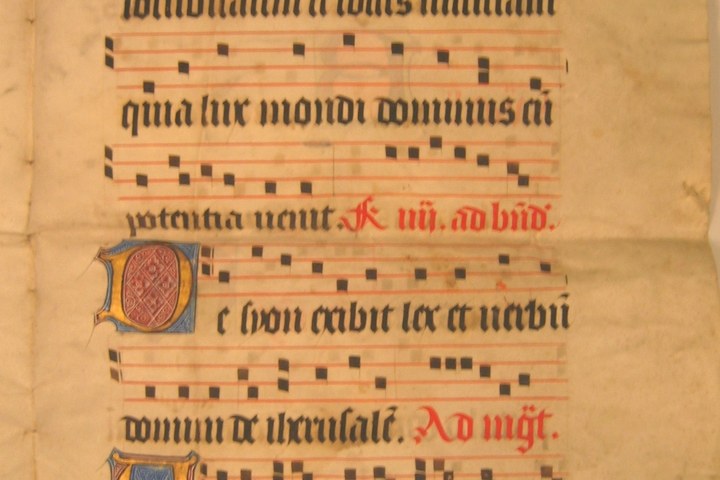 quia lux mondi dominus cū
potentia uenit. iiij. ad bn̄d'.
De syon exibit lex et uerbū
domini de iherusalē. Ad mg̃t.